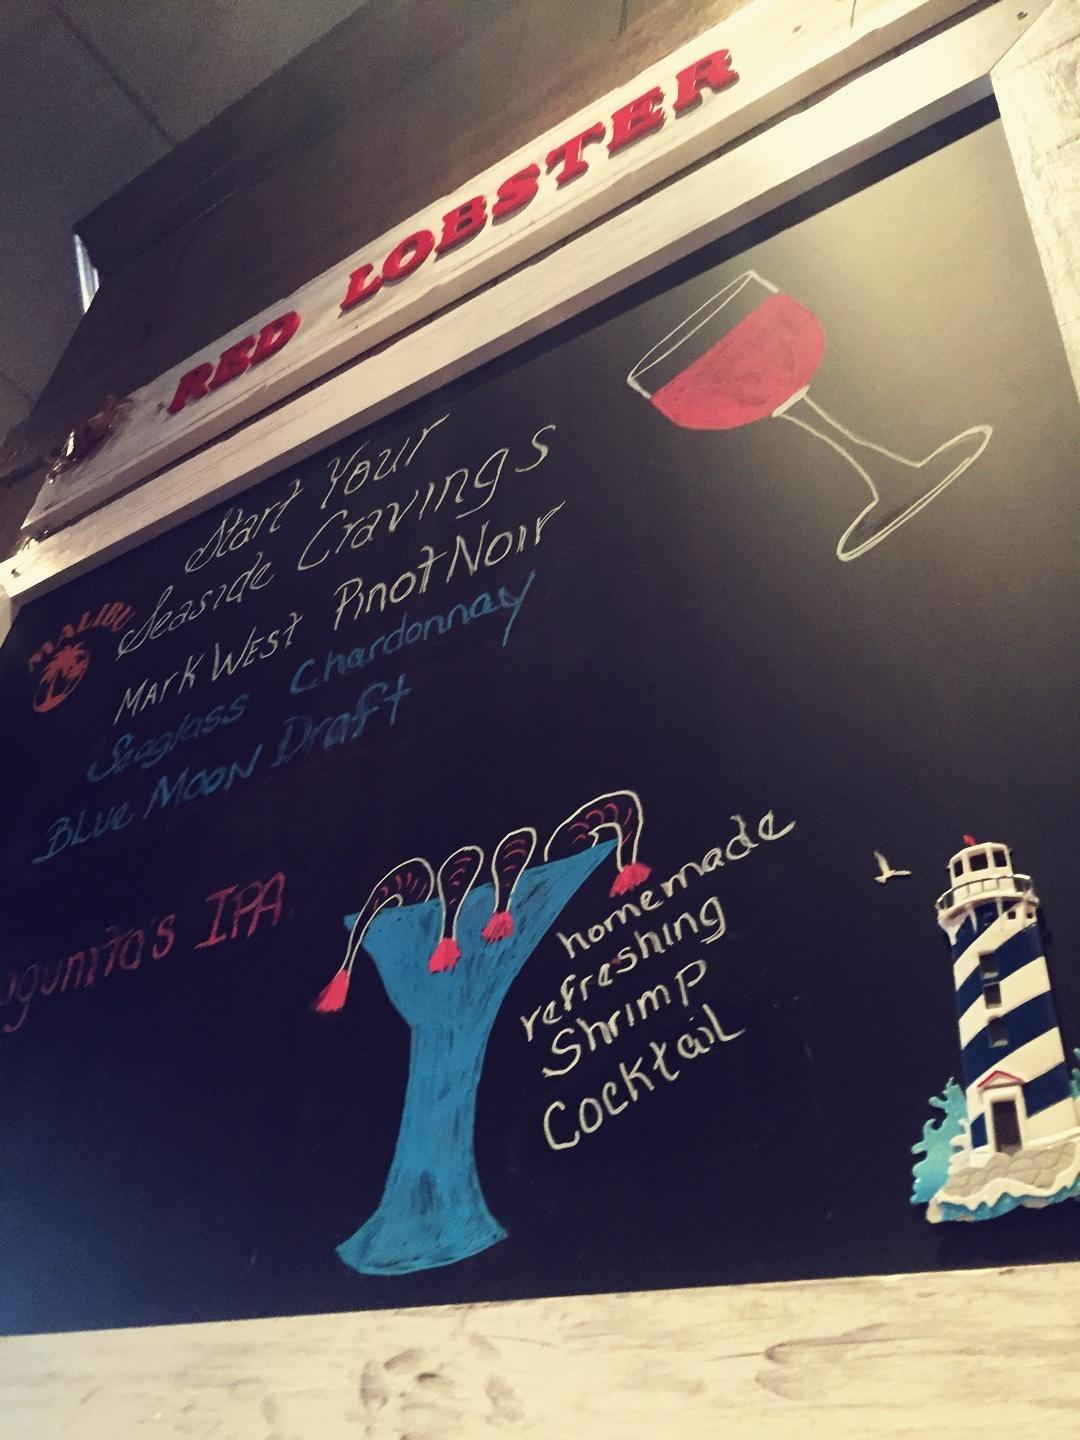 RED LOBSTER
Start Your
Seaside Cravings
MALIBU
MARK WEST Pinot Noir
Seaglass Chardonnay
BLUE MOON Draft
agunita's IPA
homemade
refreshing
Shrimp
Cocktail